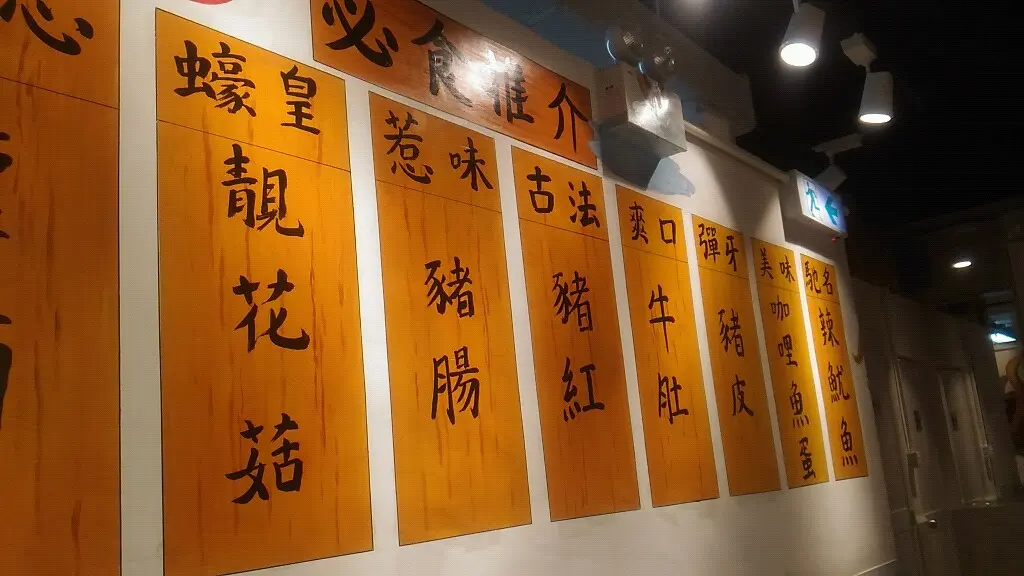 必食推介
蠔皇
靚花菇
惹味
豬腸
古法
豬紅
爽口
牛肚
彈牙
豬皮
美味
咖哩魚蛋
馳名
辣魷魚